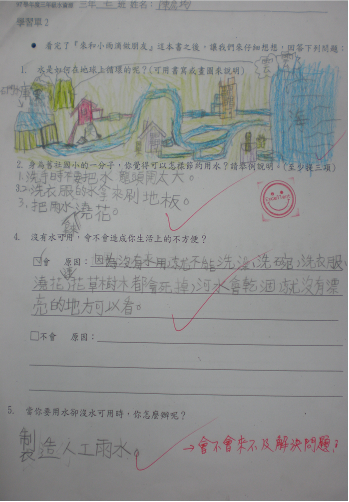 學習單 2
● 看完了『來和小雨滴做朋友』這本書之後，讓我們來仔細想想，回答下列問題：
1. 水是如何在地球上循環的呢？(可用書寫或畫圖來說明)
2. 身為舊社國小的一分子，你覺得可以怎樣節約用水？請舉例說明。(至少種三項)
1. 洗手時不要把水龍頭開太大。
2. 洗衣服的水拿來刷地板。
3. 把雨水澆花。
4. 沒有水可用，會不會造成你生活上的不方便？
□會 原因：因為沒有水用就不能洗澡，洗碗，洗衣服，
澆花，花草樹木都會死掉，河水會乾涸就沒有漂
亮的地方可以看。
□不會 原因：
5. 當你要用水卻沒水可用時，你怎麼辦呢？
製造人工雨水。
→會不會來不及解決問題？